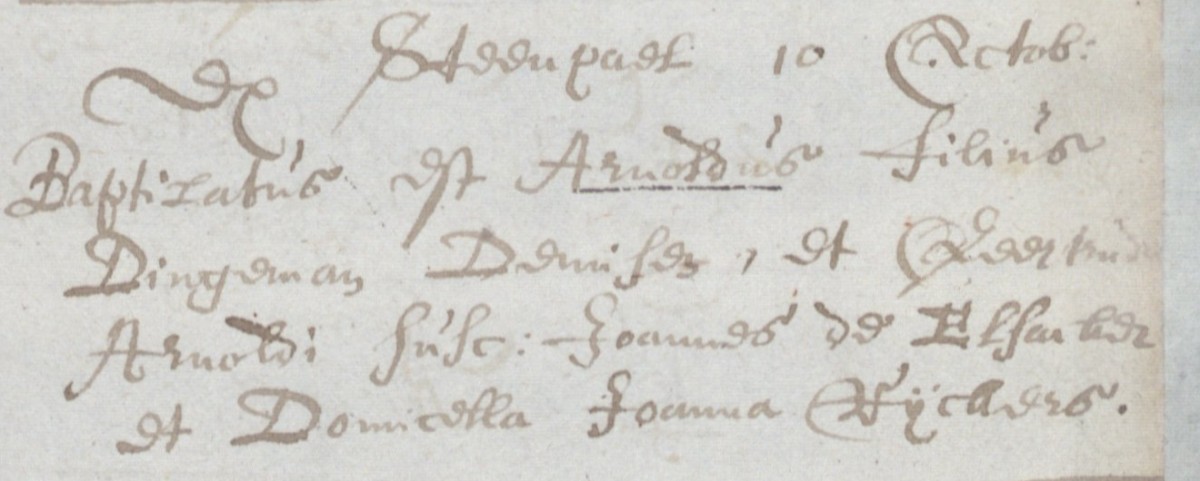 Ex Steenpael 10 Octob:
Baptizatus est Arnoldus filius
Dingeman Denisse, et Geertrud
Arnoldi susc: Joannes de Elsacker
et Domicella Joanna Ryckers.